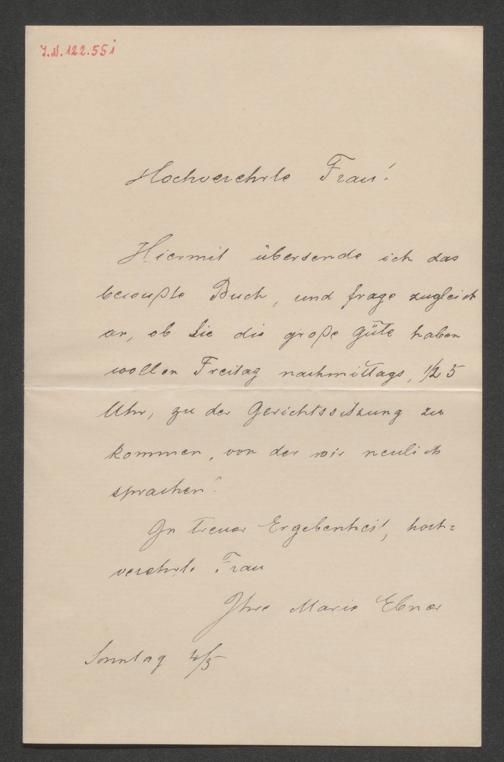 J.N. 122.551
Hochverehrte Frau!
Hiermit übersende ich das
bewußte Buch, und frage zugleich
an, ob Sie die große Güte haben
wollen Freitag nachmittags, 1/2 5
Uhr, zu der Gerichtssitzung zu
kommen, von der wir neulich
sprachen!
In treuer Ergebenheit, hoch=
verehrte Frau
Ihre Marie Ebner
Sonntag 4/5